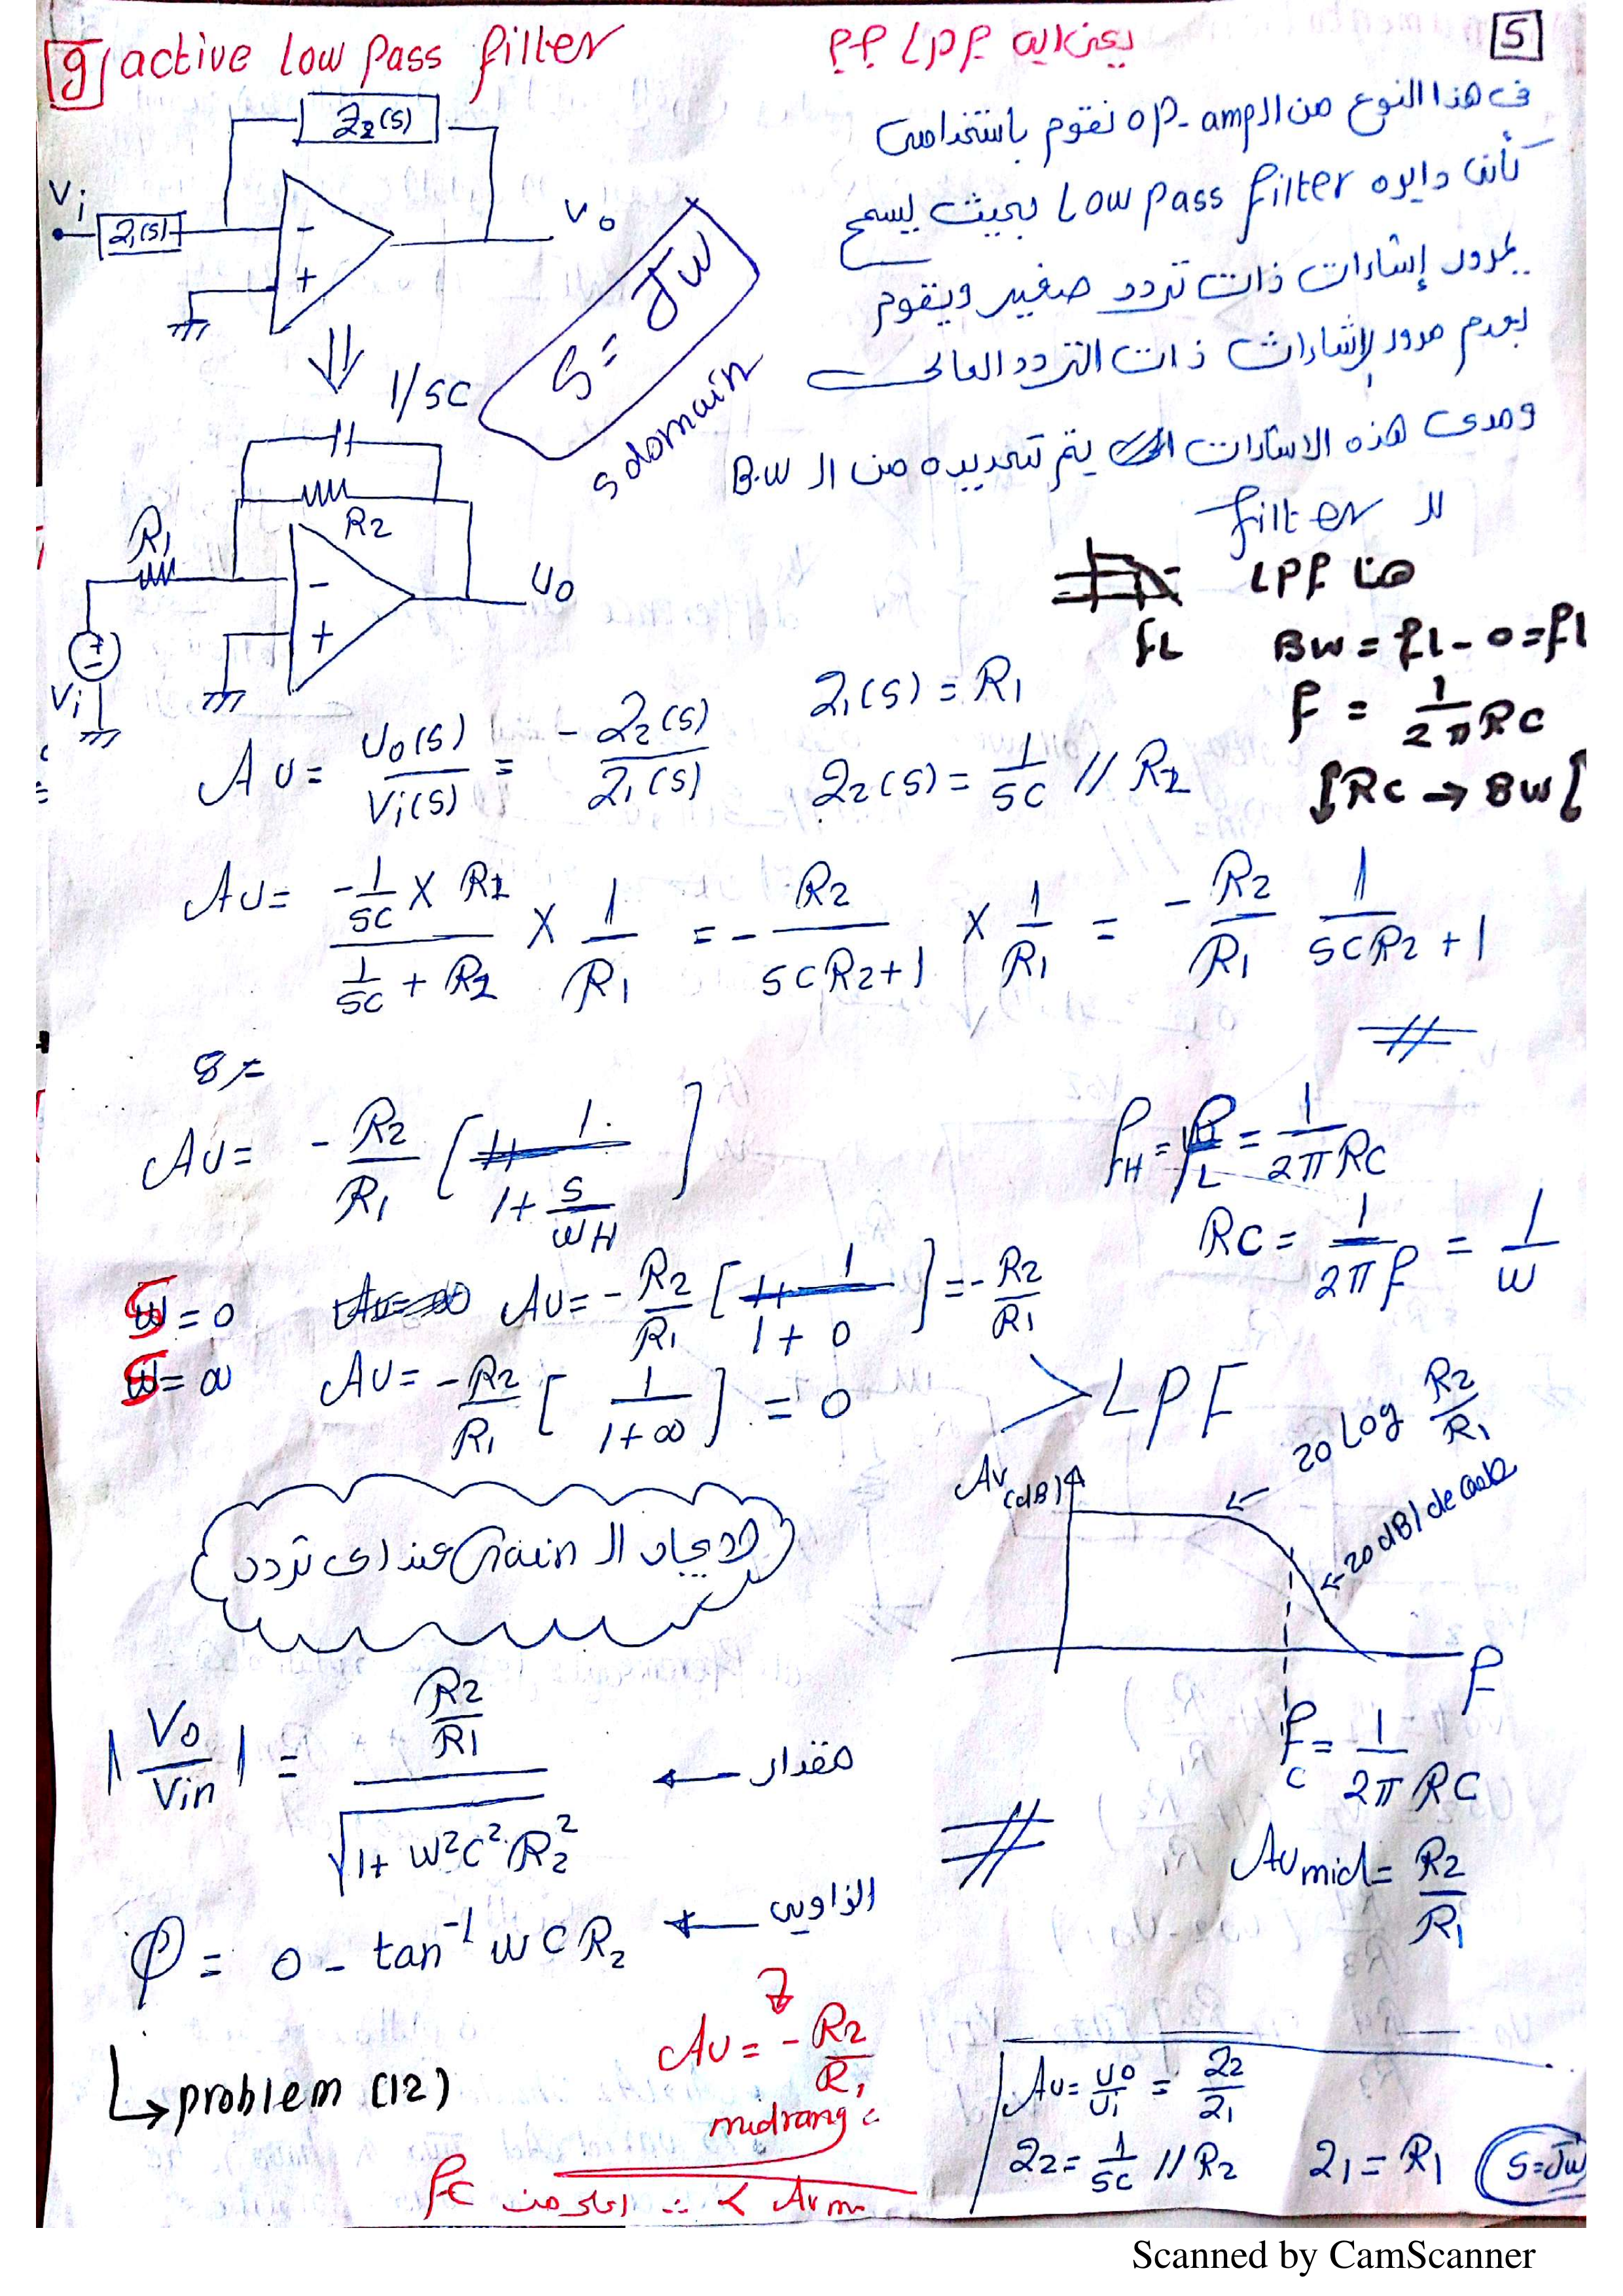 g/ active Low Pass filter
يعنى ايه LPF ؟؟
5
فى هذا النوع من الـ op-amp نقوم باستخدامه
كأنه دايره Low pass filter بحيث يسمح
بمرور إشارات ذات تردد صغير ويقوم
بعدم مرور إشارات ذات التردد العالى
ومدى هذه الاشارات يتم تحديده من الـ B.W
لل filter
Z₂(s)
Vi
Z₁(s)
-
+
Vo
S = Jω
s domain
1/SC
R₂
R₁
-
+
Vo
Vi
هنا LPF
fL
BW = fL - 0 = fL
f = 1/2πRC
RC → BW
Av = Vo(s)/Vi(s) = - Z₂(s)/Z₁(s)
Z₁(s) = R₁
Z₂(s) = 1/SC // R₂
Av = (-1/SC × R₂)/(1/SC + R₂) × 1/R₁ = - R₂/(SCR₂+1) × 1/R₁ = - R₂/R₁ 1/(SCR₂+1)
Av = - R₂/R₁ [1/(1 + S/ωH)]
fH = fL = 1/2πRC
RC = 1/2πf = 1/ω
S = 0 Av = - R₂/R₁ [1/(1+0)] = - R₂/R₁
S = ∞ Av = - R₂/R₁ [1/(1+∞)] = 0
> LPF
20 Log R₂/R₁
Av(dB)
20 dB/decade
f
لإيجاد الـ Gain عند اى تردد
|Vo/Vin| = (R₂/R₁)/√(1 + ω²C²R₂²) ← مقدار
fc = 1/2πRC
Av mid = R₂/R₁
φ = 0 - tan⁻¹ ωCR₂ ← الزاويه
↳ problem (12)
Av = - R₂/R₁
midrange
Av = Vo/Vi = Z₂/Z₁
Z₂ = 1/SC // R₂ Z₁ = R₁ S=Jω
Scanned by CamScanner